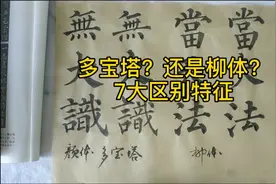 多宝塔？还是柳体？
7大区别特征
無大識
無大識
當大法
當大法
颜体 多宝塔
柳体